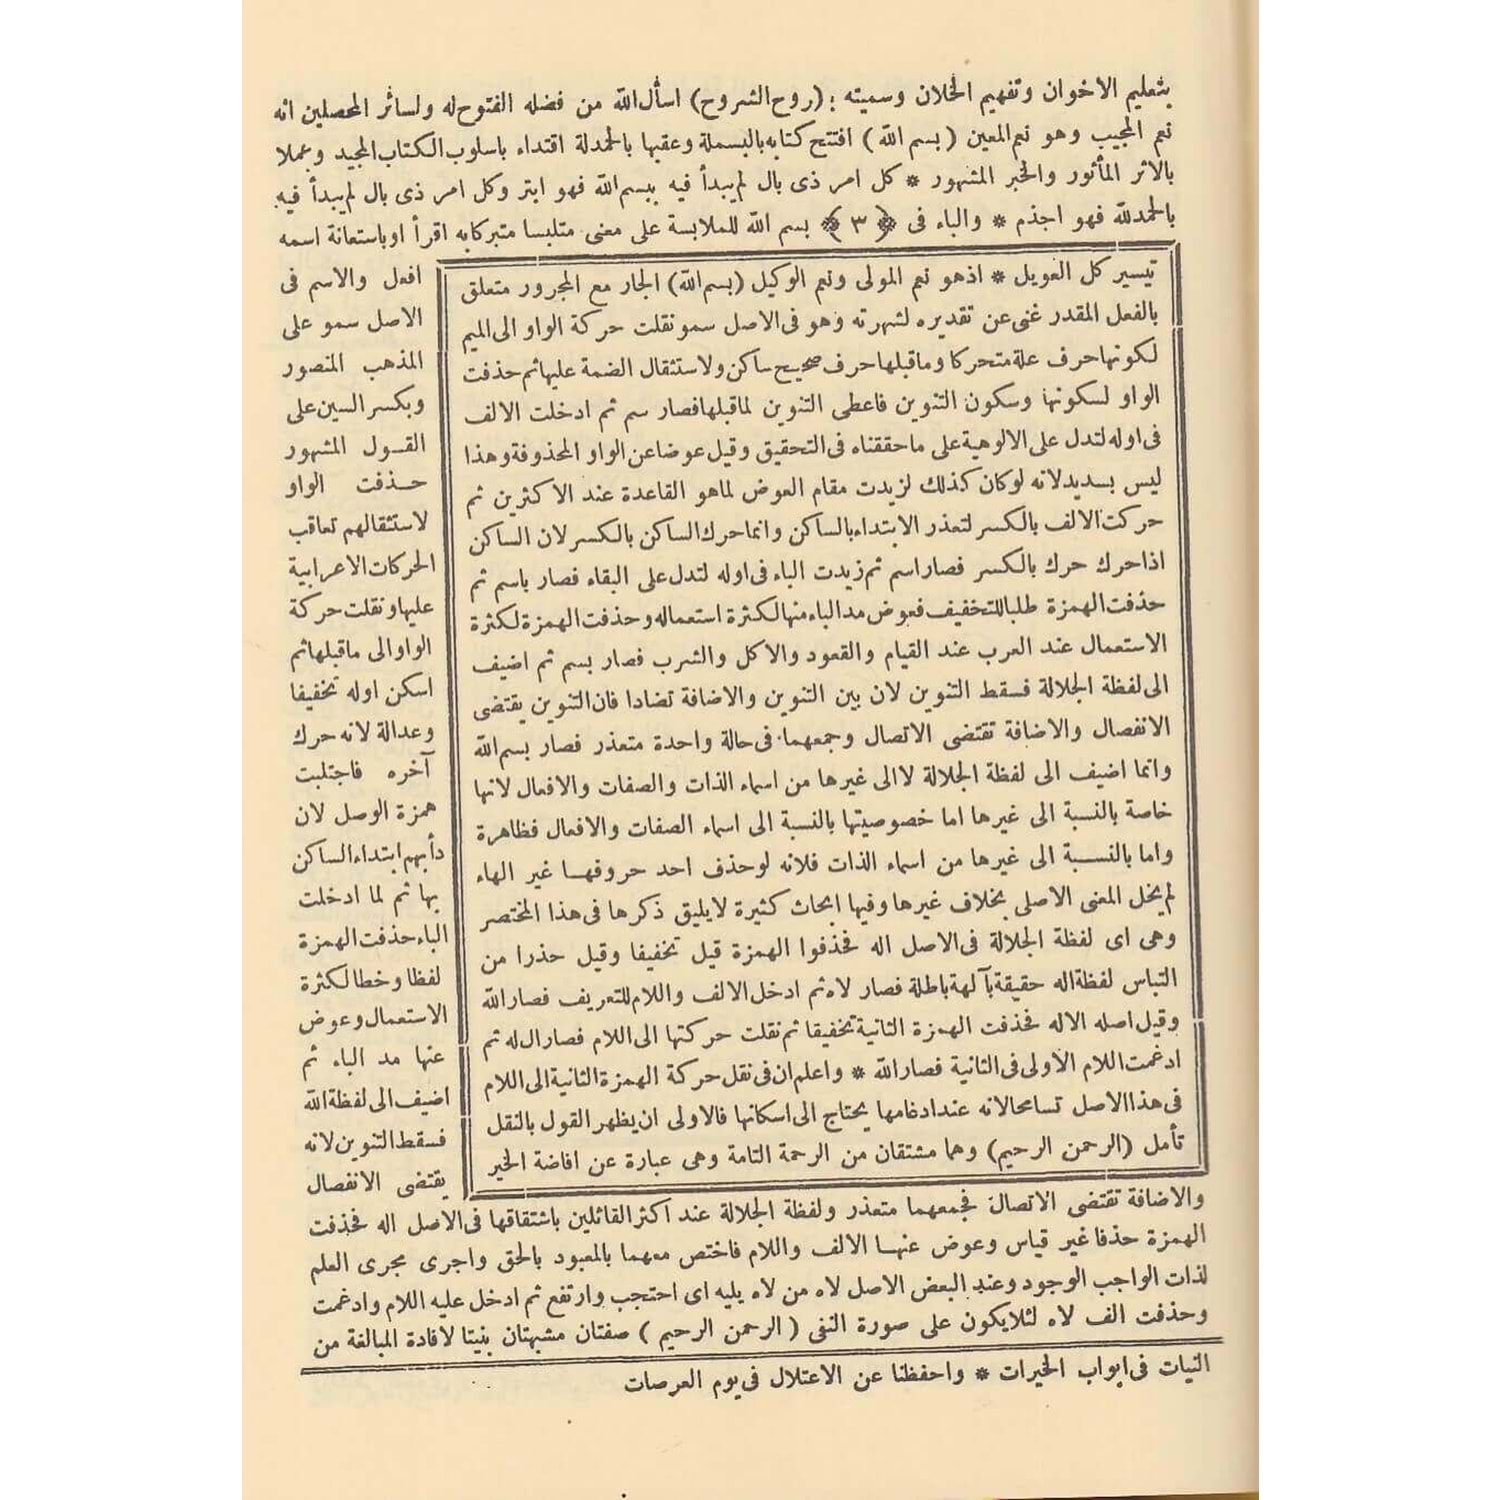 بتعليم الاخوان وتفهيم الخلان وسميته : (روح الشروح) اسأل الله من فضله الفتوح له ولسائر المحصلين انه
نعم المجيب وهو نعم المعين (بسم الله) افتتح كتابه بالبسملة وعقبها بالحمدلة اقتداء باسلوب الكتاب المجيد وعملا
بالاثر المأثور والخبر المشهور * كل امر ذى بال لم يبدأ فيه ببسم الله فهو ابتر وكل امر ذى بال لم يبدأ فيه
بالحمدلله فهو اجذم * والباء فى ﴿ ٣ ﴾ بسم الله للملابسة على معنى متلبسا متبركا به اقرأ او باستعانة اسمه
افعل والاسم فى
الاصل سمو على
المذهب المنصور
وبكسر السين على
القول المشهور
حذفت الواو
لاستثقالهم تعاقب
الحركات الاعرابية
عليها ونقلت حركة
الواو الى ماقبلها ثم
اسكن اوله تخفيفا
وعدالة لانه حرك
آخره فاجتلبت
همزة الوصل لان
دأبهم ابتداء الساكن
بها ثم لما ادخلت
الباء حذفت الهمزة
لفظا وخطا لكثرة
الاستعمال وعوض
عنها مد الباء ثم
اضيف الى لفظة الله
فسقط التنوين لانه
يقتضى الانفصال
والاضافة تقتضى الاتصال فجمعهما متعذر ولفظة الجلالة عند اكثر القائلين باشتقاقها فى الاصل اله فحذفت
الهمزة حذفا غير قياس وعوض عنها الالف واللام فاختص معهما بالمعبود بالحق واجرى مجرى العلم
لذات الواجب الوجود وعند البعض الاصل لاه من لاه يليه اى احتجب وارتفع ثم ادخل عليه اللام وادغمت
وحذفت الف لاه لئلا يكون على صورة النفى (الرحمن الرحيم) صفتان مشبهتان بنيتا لافادة المبالغة من
تيسير كل العويل * اذ هو نعم المولى ونعم الوكيل (بسم الله) الجار مع المجرور متعلق
بالفعل المقدر غنى عن تقديره لشهرته وهو فى الاصل سمو نقلت حركة الواو الى الميم
لكونها حرف علة متحركا وماقبلها حرف صحيح ساكن ولاستثقال الضمة عليها ثم حذفت
الواو لسكونها وسكون التنوين فاعطى التنوين لماقبلها فصار سم ثم ادخلت الالف
فى اوله لتدل على الالوهية على ماحققناه فى التحقيق وقيل عوضا عن الواو المحذوفة وهذا
ليس بسديد لانه لو كان كذلك لزيدت مقام العوض لما هو القاعدة عند الاكثرين ثم
حركت الالف بالكسر لتعذر الابتداء بالساكن وانما حرك الساكن بالكسر لان الساكن
اذا حرك حرك بالكسر فصار اسم ثم زيدت الباء فى اوله لتدل على البقاء فصار باسم ثم
حذفت الهمزة طلبا للتخفيف فعوض مد الباء منها لكثرة استعماله وحذفت الهمزة لكثرة
الاستعمال عند العرب عند القيام والقعود والاكل والشرب فصار بسم ثم اضيف
الى لفظة الجلالة فسقط التنوين لان بين التنوين والاضافة تضادا فان التنوين يقتضى
الانفصال والاضافة تقتضى الاتصال وجمعهما فى حالة واحدة متعذر فصار بسم الله
وانما اضيف الى لفظة الجلالة لا الى غيرها من اسماء الذات والصفات والافعال لانها
خاصة بالنسبة الى غيرها اما خصوصيتها بالنسبة الى اسماء الصفات والافعال فظاهرة
واما بالنسبة الى غيرها من اسماء الذات فلانه لو حذف احد حروفها غير الهاء
لم يخل المعنى الاصلى بخلاف غيرها وفيها ابحاث كثيرة لايليق ذكرها فى هذا المختصر
وهى اى لفظة الجلالة فى الاصل اله فحذفوا الهمزة قيل تخفيفا وقيل حذرا من
التباس لفظة اله حقيقة بآلهة باطلة فصار لاه ثم ادخل الالف واللام للتعريف فصار الله
وقيل اصله الاله فحذفت الهمزة الثانية تخفيفا ثم نقلت حركتها الى اللام فصار ال له ثم
ادغمت اللام الاولى فى الثانية فصار الله * واعلم ان فى نقل حركة الهمزة الثانية الى اللام
فى هذا الاصل تسامحا لانه عند ادغامها يحتاج الى اسكانها فالاولى ان يظهر القول بالنقل
تأمل (الرحمن الرحيم) وهما مشتقان من الرحمة التامة وهى عبارة عن افاضة الخير
النيات فى ابواب الخيرات * واحفظنا عن الاعتلال فى يوم العرصات